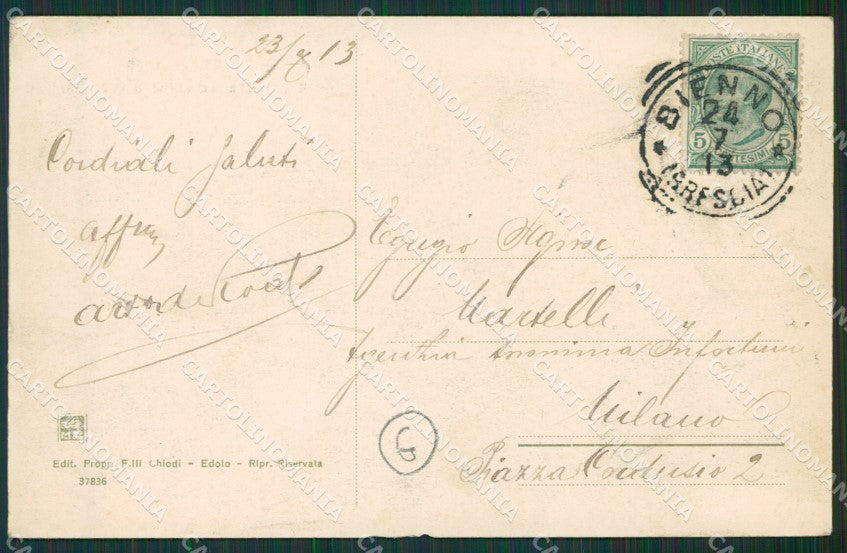 23/7 13
Cordiali saluti
affmo
Egregio Signor
Martelli
Anonima Infortuni
Milano
Piazza Cordusio 2
POSTE ITALIANE
5 CENTESIMI 5
BIENNO
24
7
13
(BRESCIA)
G
Edit. Propr. F.lli Chiodi - Edolo - Ripr. Riservata
37836
CARTOLINOMANIA